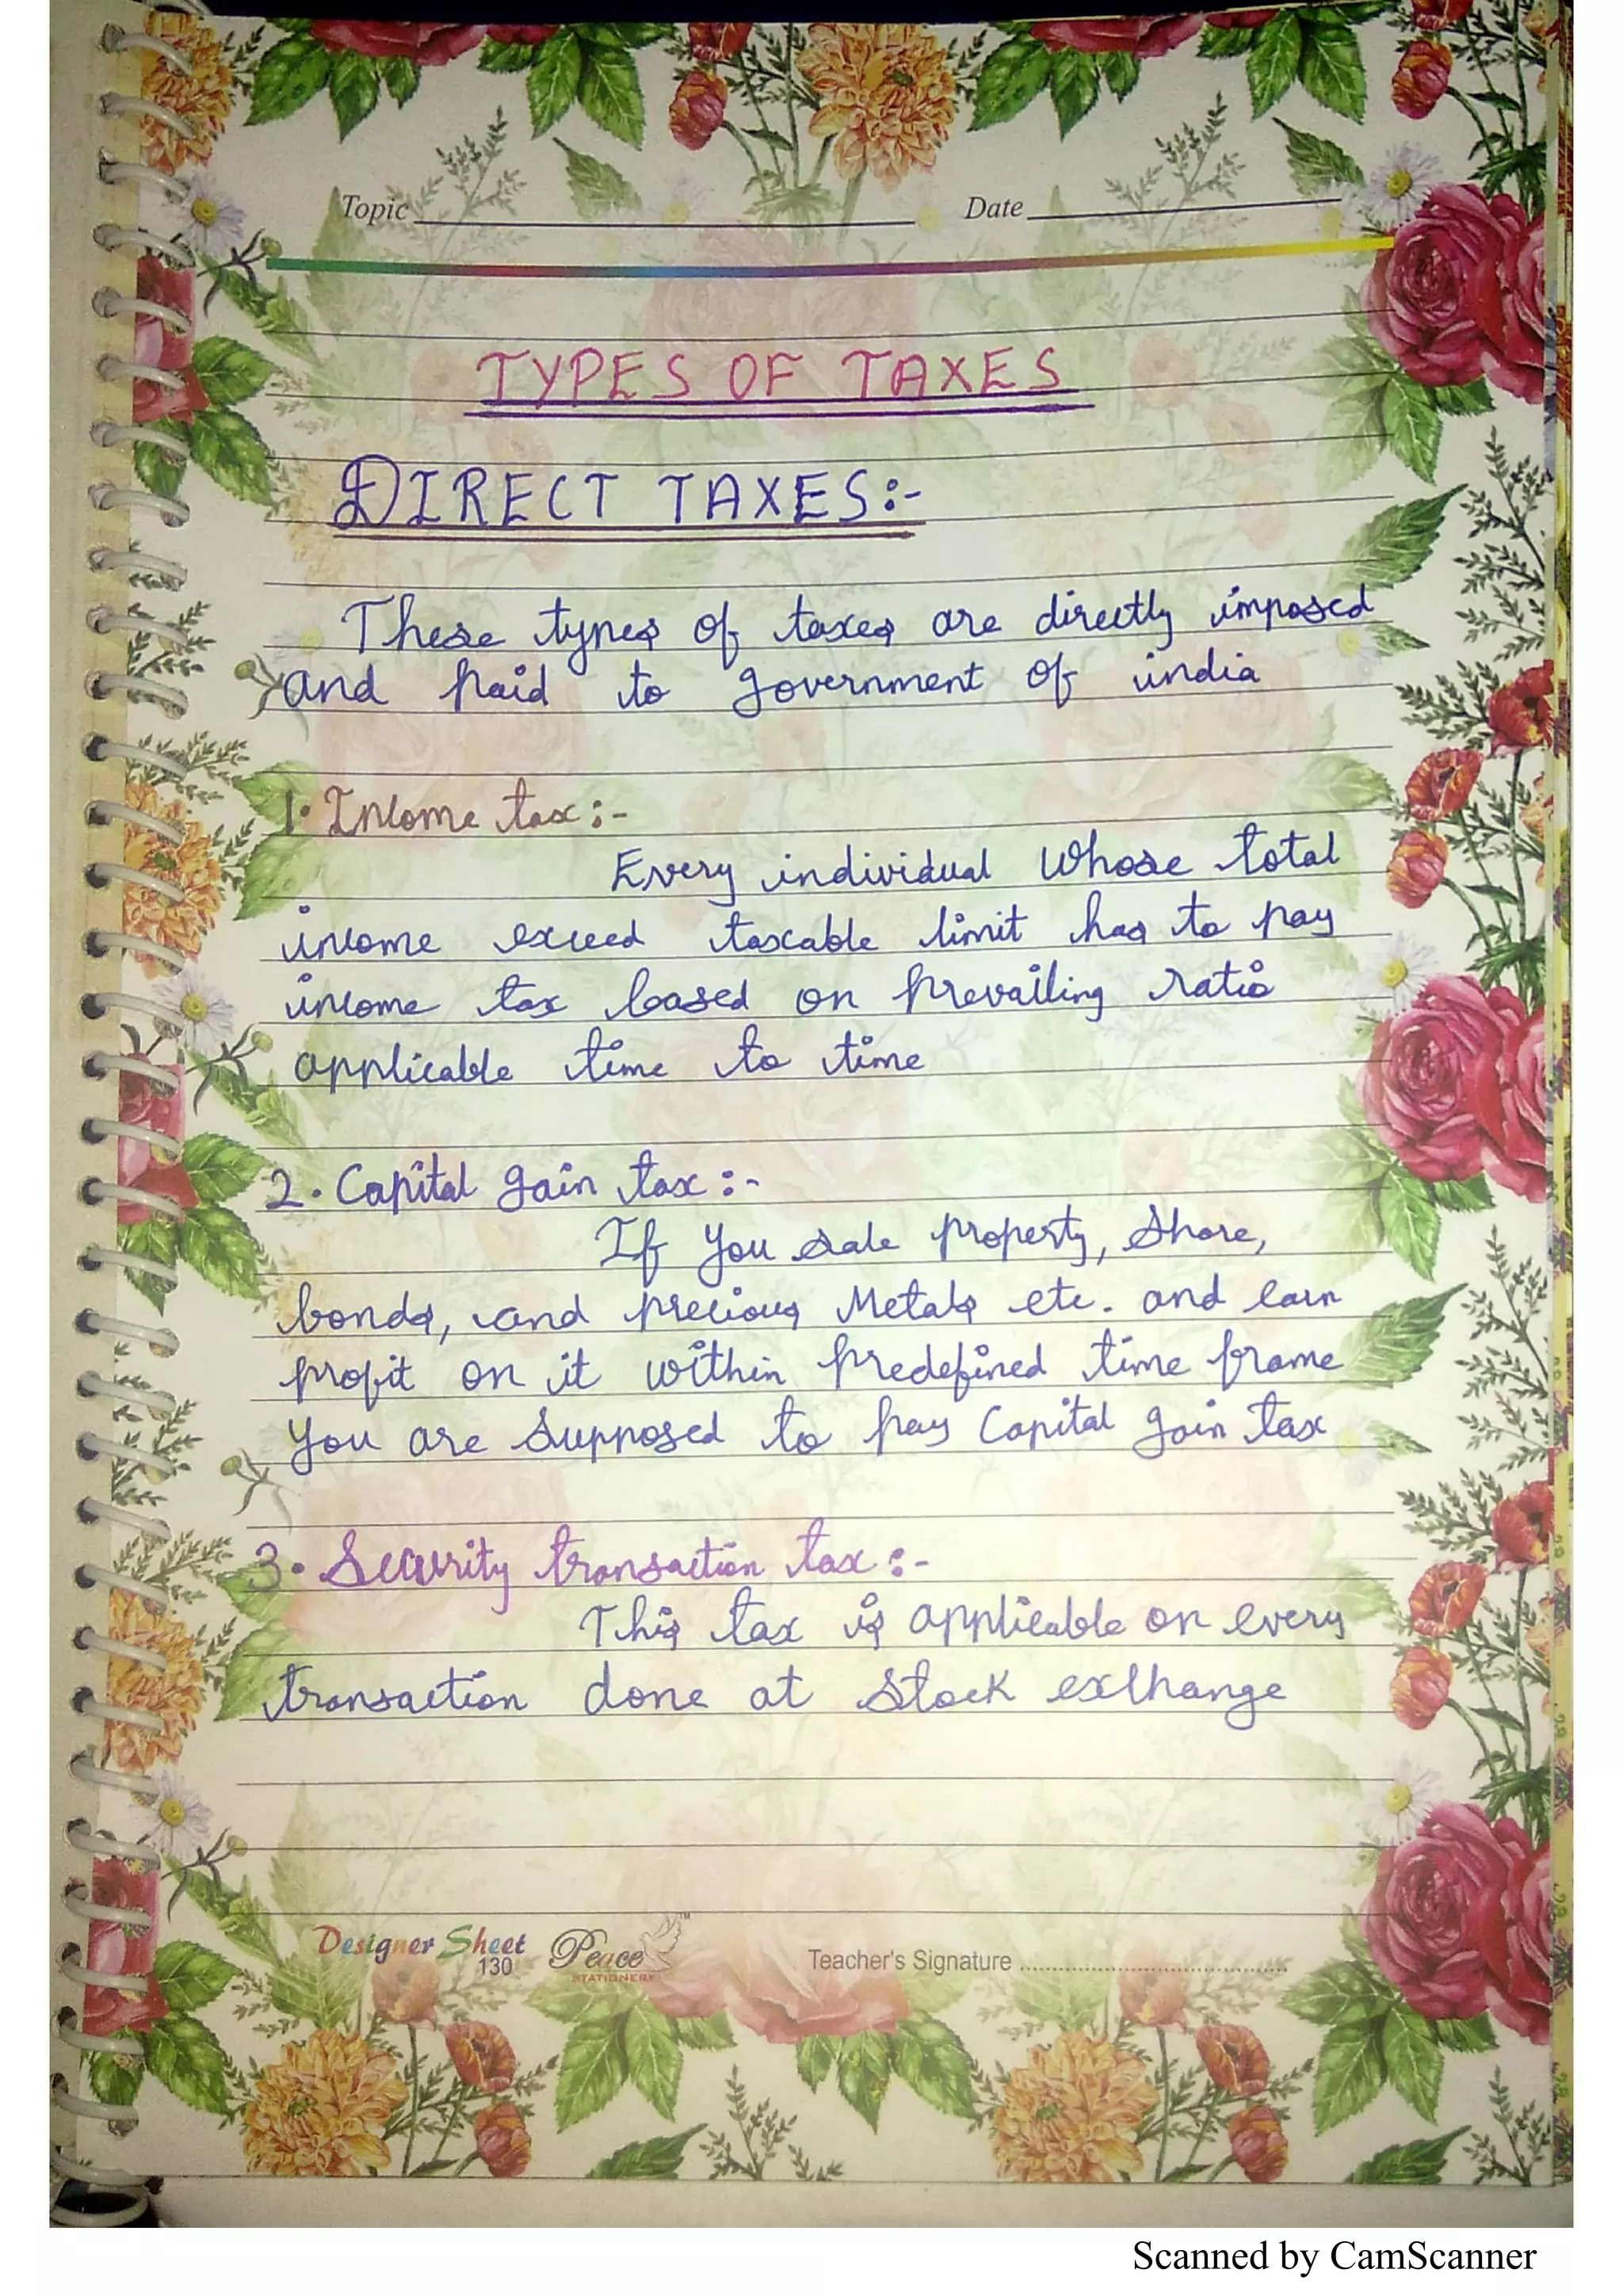 Topic
Date
TYPES OF TAXES
DIRECT TAXES:-
These types of taxes are directly imposed
and paid to government of india
1. Income tax:-
Every individual Whose total
income exceed taxable limit has to pay
income tax based on prevailing ratio
applicable time to time
2. Capital gain tax:-
If you sale property, Share,
bonds, and precious Metals etc. and earn
profit on it within predefined time frame
you are Supposed to pay Capital gain tax
3. Security transaction tax:-
This tax is applicable on every
transaction done at stock exchange
Designer Sheet
130
Peace
STATIONERY
TM
Teacher's Signature
Scanned by CamScanner